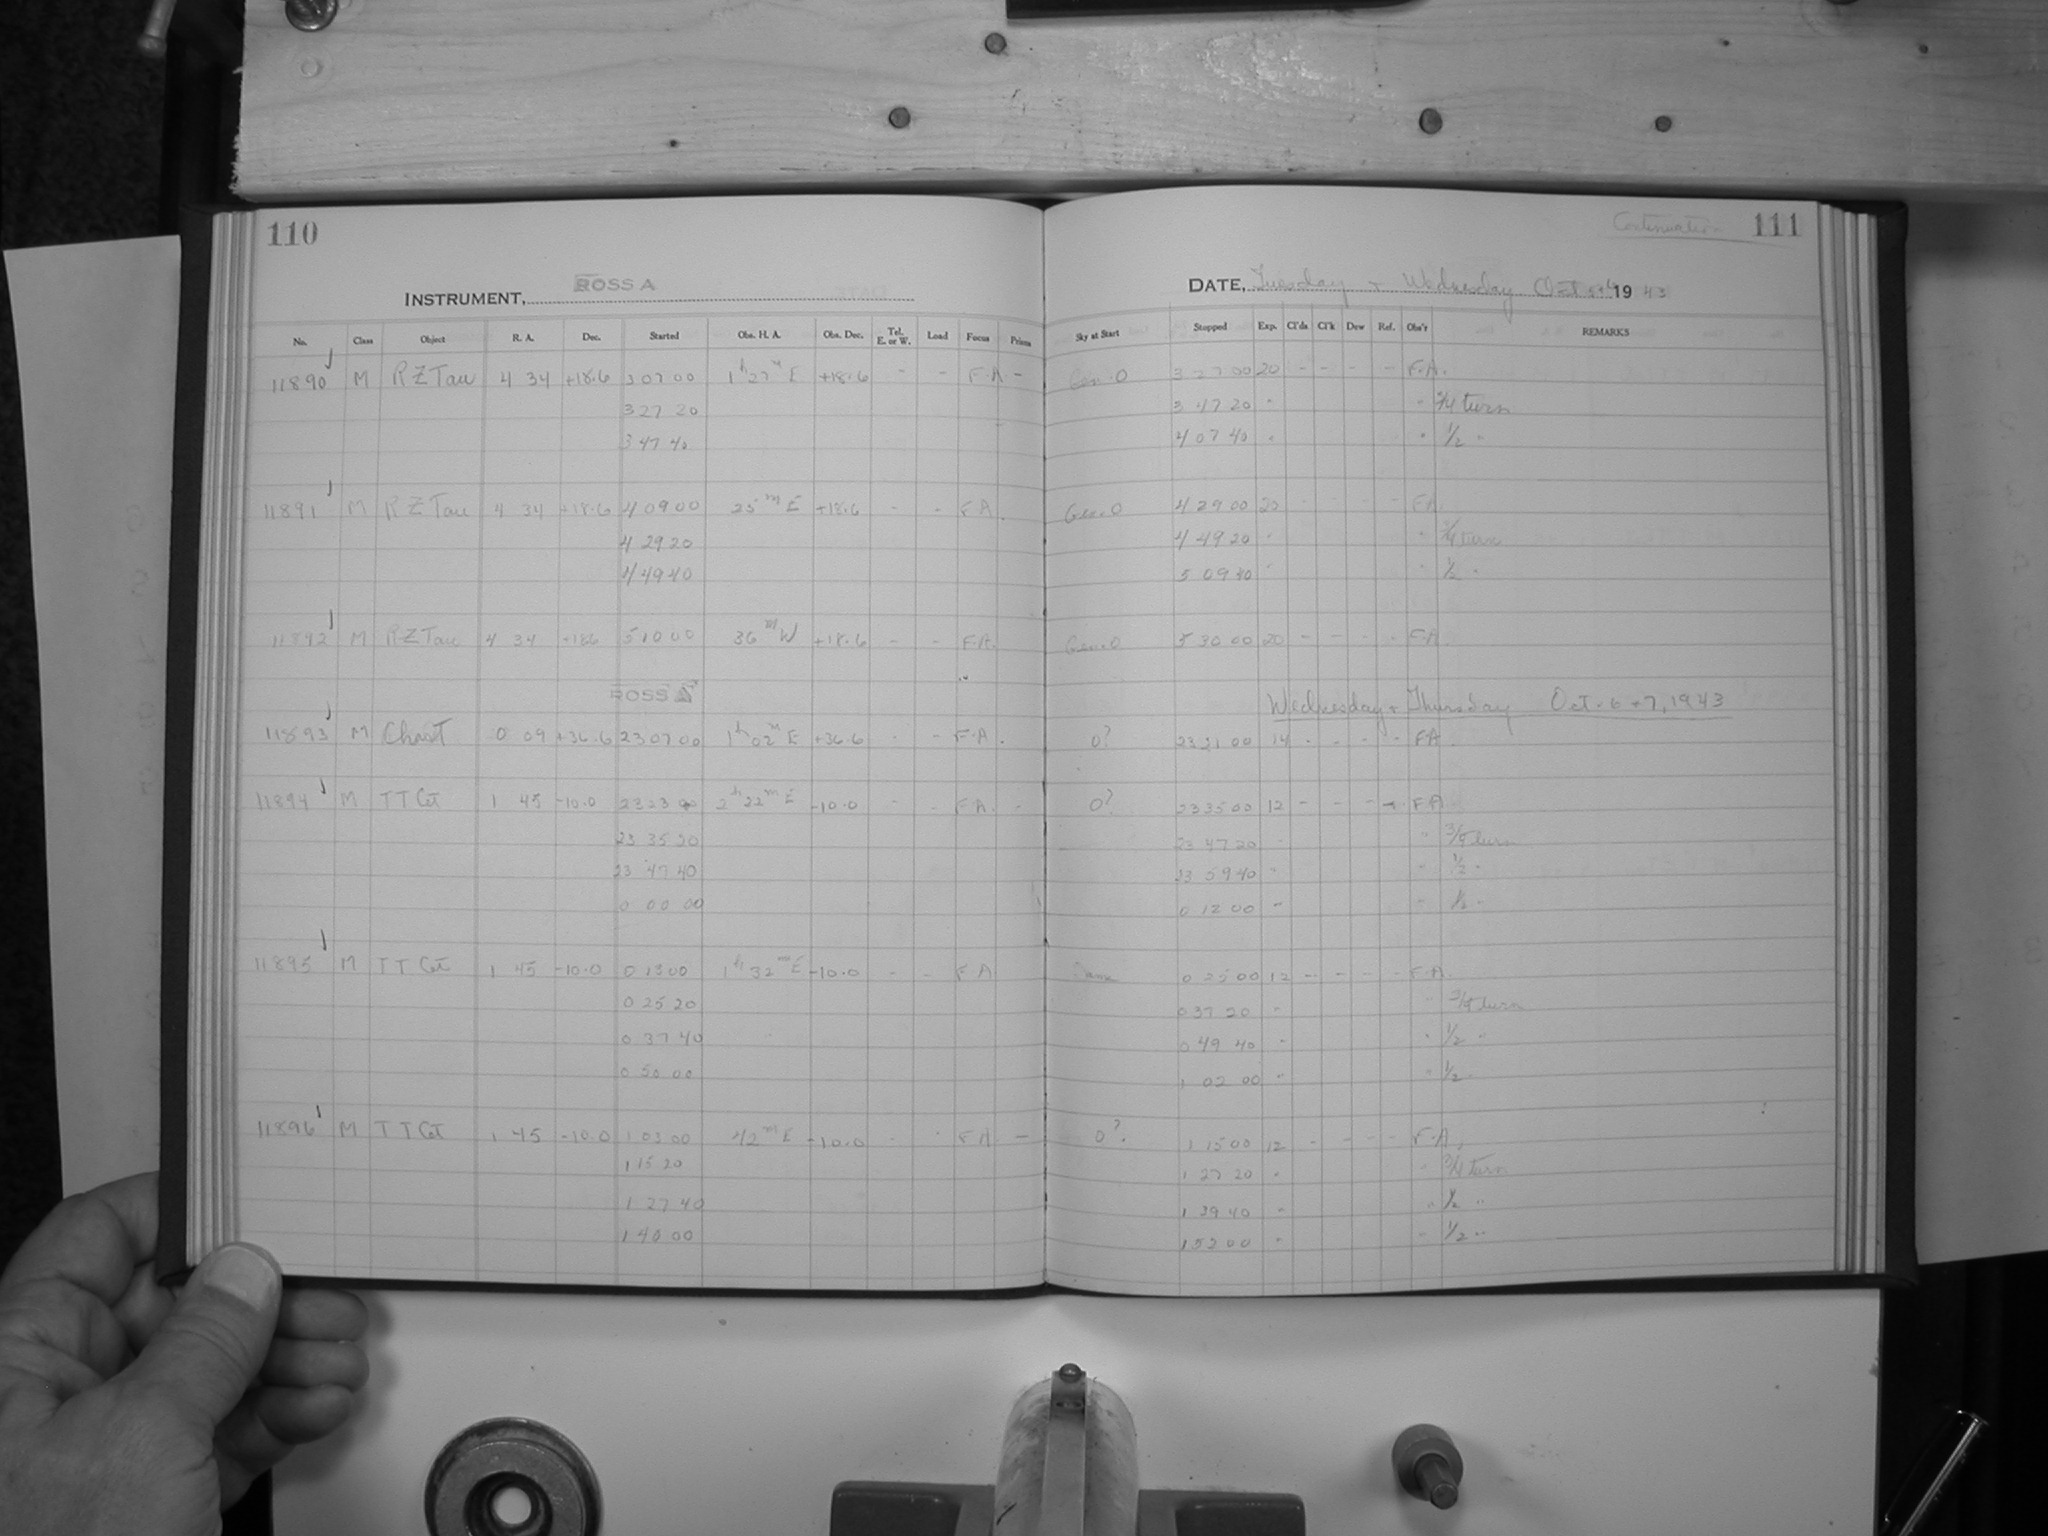 110
INSTRUMENT, ROSS A
No. Class Object R. A. Dec. Started Obs. H. A. Obs. Dec. Tel. E. or W. Load Focus Prism
11890 M RZ Tau 4 34 +18.6 3 07 00 1h 27m E +18.6 - - F.A -
3 27 20
3 47 40
11891 M RZ Tau 4 34 +18.6 4 09 00 25m E +18.6 - - F A.
4 29 20
4 49 40
11892 M RZ Tau 4 34 +18.6 5 10 00 36m W +18.6 - - F.A.
ROSS A
11893 M Chart 0 09 +36.6 23 07 00 1h 02m E +36.6 - - F.A.
11894 M TT Cet 1 45 -10.0 23 23 00 2h 22m E -10.0 - - F A. -
23 35 20
23 47 40
0 00 00
11895 M TT Cet 1 45 -10.0 0 13 00 1h 32m E -10.0 - - F A
0 25 20
0 37 40
0 50 00
11896 M TT Cet 1 45 -10.0 1 03 00 42m E -10.0 - - F A -
1 15 20
1 27 40
1 40 00
Continuation 111
DATE, Tuesday + Wednesday Oct 1943
Sky at Start Stopped Exp. Cl'ds Cl'k Dew Ref. Obs'r REMARKS
3 27 00 20 - - - - F.A.
3 47 20 " " 3/4 turn
4 07 40 " " 1/2 "
4 29 00 20 - - - - FA
4 49 20 " " 3/4 turn
5 09 40 " " 1/2 "
5 30 00 20 - - - - F.A.
Wednesday + Thursday Oct. 6 + 7, 1943
0? 23 21 00 14 - - - - FA.
0? 23 35 00 12 - - - - F A
23 47 20 " " 3/4 turn
23 59 40 " " 1/2 "
0 12 00 " " 1/2 "
Same 0 25 00 12 - - - - F.A.
0 37 20 " " 3/4 turn
0 49 40 " " 1/2 "
1 02 00 " " 1/2 "
0?. 1 15 00 12 - - - - F.A.
1 27 20 " " 3/4 turn
1 39 40 " " 1/2 "
1 52 00 " " 1/2 "